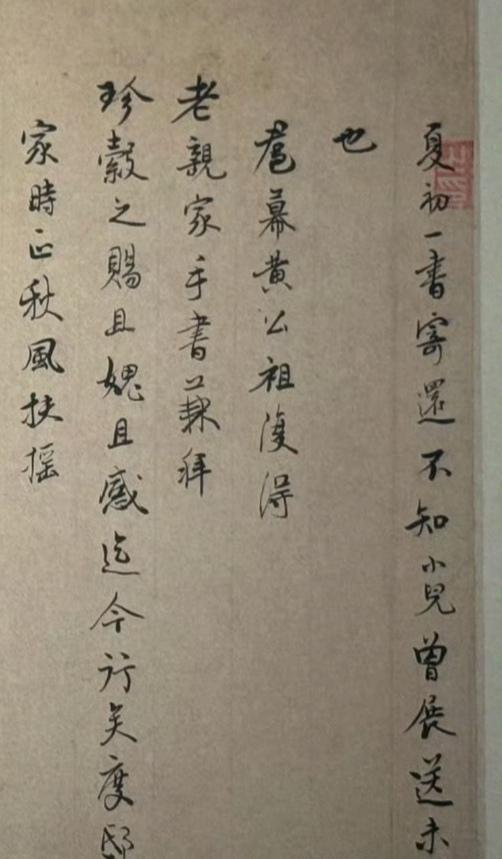 夏初一書寄還不知小兒曾展送未
也
幕黃公祖復得
老親家手書兼拜
珍縠之賜且媿且感迄今行矣度邸
家時正秋風扶搖